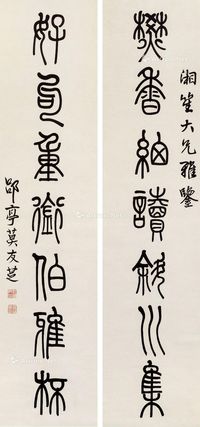 湘笙大兄雅鑒
焚香細讀斜川集
好重銜伯雅杯
郘亭莫友芝